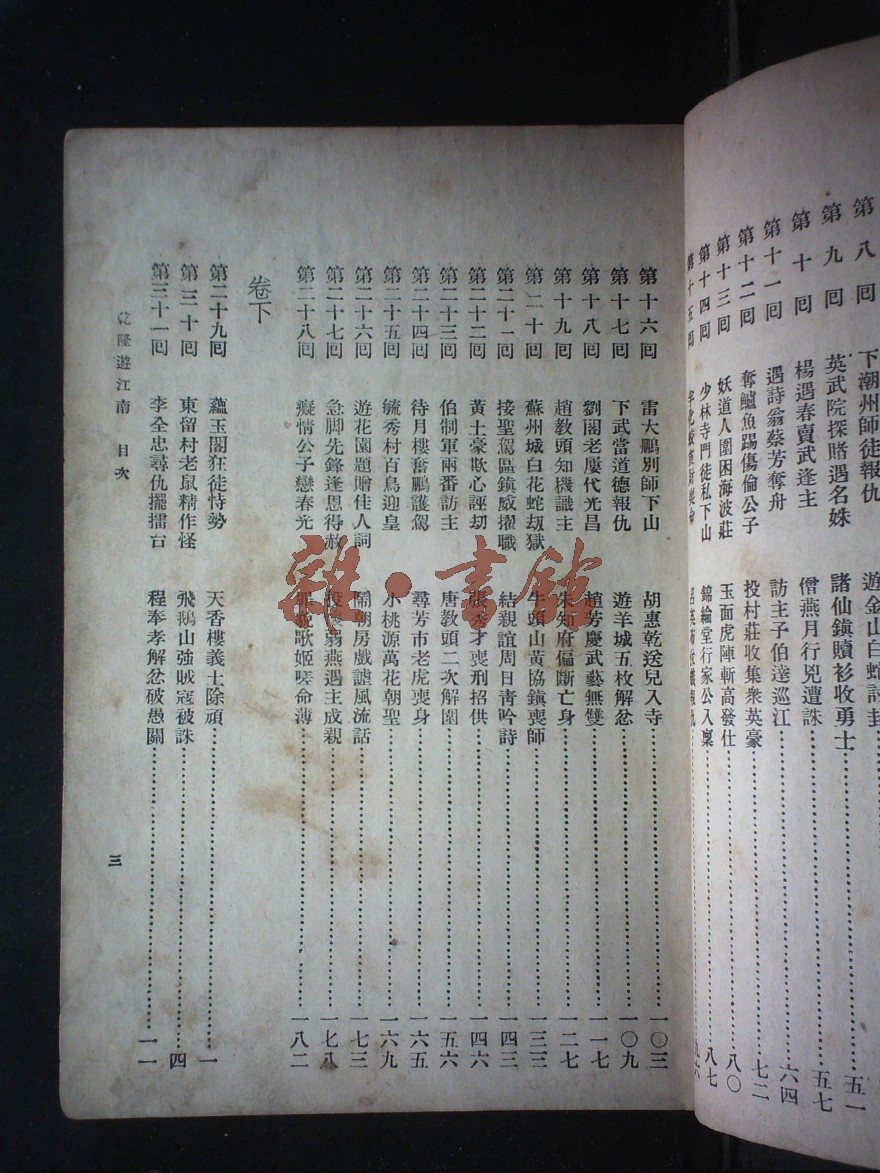 第八回 下潮州師徒報仇 遊金山白蛇討封 五一
第九回 英武院探賭遇名姝 諸仙鎭贖衫收勇士 五七
第十回 楊遇春賣武逢主 僧燕月行兇遭誅 六四
第十一回 遇詩翁蔡芳奪舟 訪主子伯達巡江 七二
第十二回 奪鱸魚踢傷倫公子 投村莊收集衆英豪 八〇
第十三回 妖道人圍困海波莊 玉面虎陣斬高發仕 八七
第十四回 少林寺門徒私下山 錦綸堂行家公入稟
第十五回
第十六回 雷大鵬別師下山 胡惠乾送兒入寺 一〇三
第十七回 下武當道德報仇 遊羊城五枚解忿 一〇九
第十八回 劉閣老屢代光昌 趙芳慶武藝無雙 一一七
第十九回 趙教頭知機識主 朱知府偏斷亡身 一二七
第二十回 蘇州城白花蛇刼獄 牛頭山黃協鎭喪師 一三三
第二十一回 接聖駕區鎭威擢職 結親誼周日青吟詩 一四三
第二十二回 黃土豪欺心誣刧 張秀才喪刑招供 一四六
第二十三回 伯制軍兩番訪主 唐教頭二次解圍 一五六
第二十四回 待月樓奮鵬護駕 尋芳市老虎喪身 一六五
第二十五回 毓秀村百鳥迎皇 小桃源萬花朝聖 一六九
第二十六回 遊花園題贈佳人詞 鬧朝房戲謔風流話 一七三
第二十七回 急脚先鋒逢恩得赦 投懷弱燕遇主成親 一七八
第二十八回 癡情公子戀春光 歌姬嗟命薄 一八二
卷下
第二十九回 蘊玉閣狂徒恃勢 天香樓義士除頑 一
第三十回 東留村老鼠精作怪 飛鵝山強賊寇被誅 四
第三十一回 李全忠尋仇擺擂台 程奉孝解忿破愚關 一一
乾隆遊江南 目次
三
雜·書館